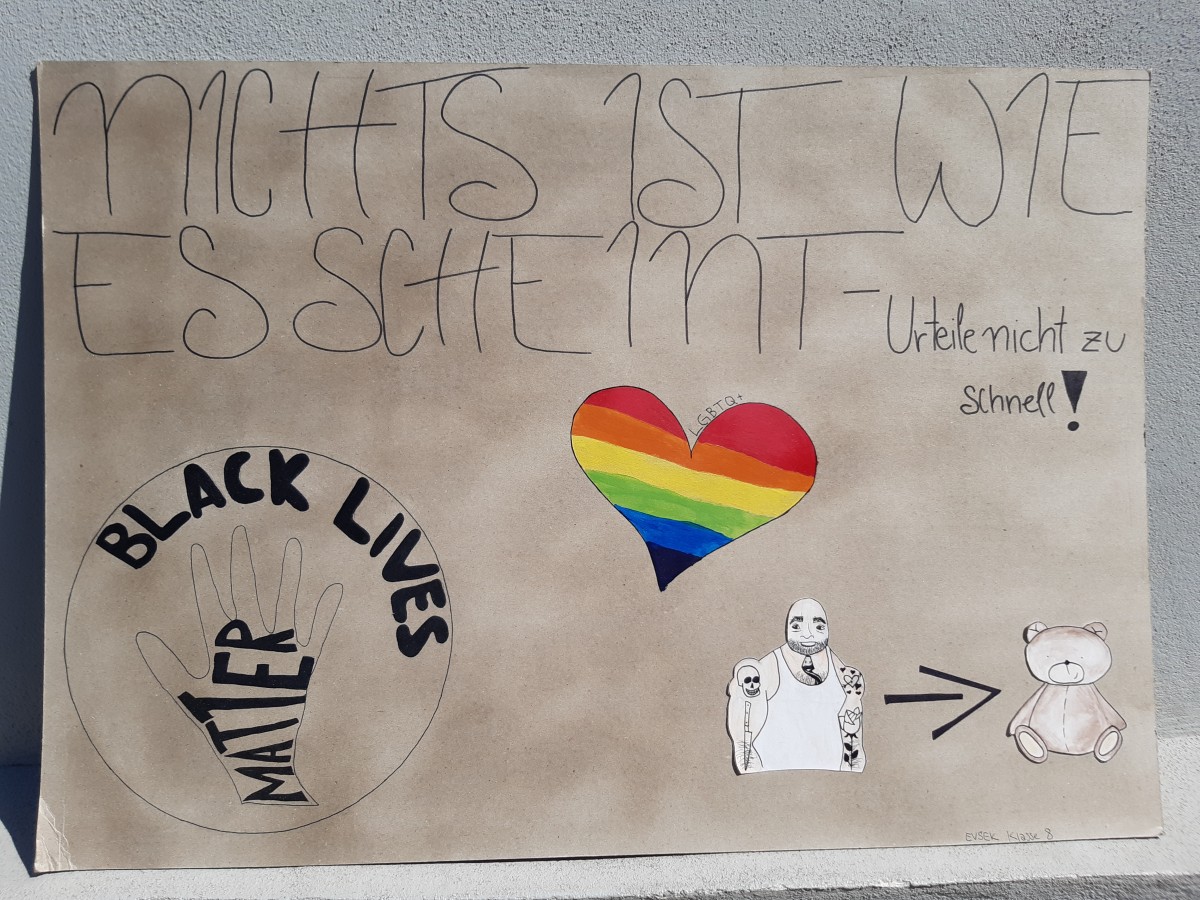 NICHTS IST WIE
ES SCHEINT - Urteile nicht zu
schnell!
LGBTQ+
BLACK LIVES
MATTER
EVSEK Klasse 8